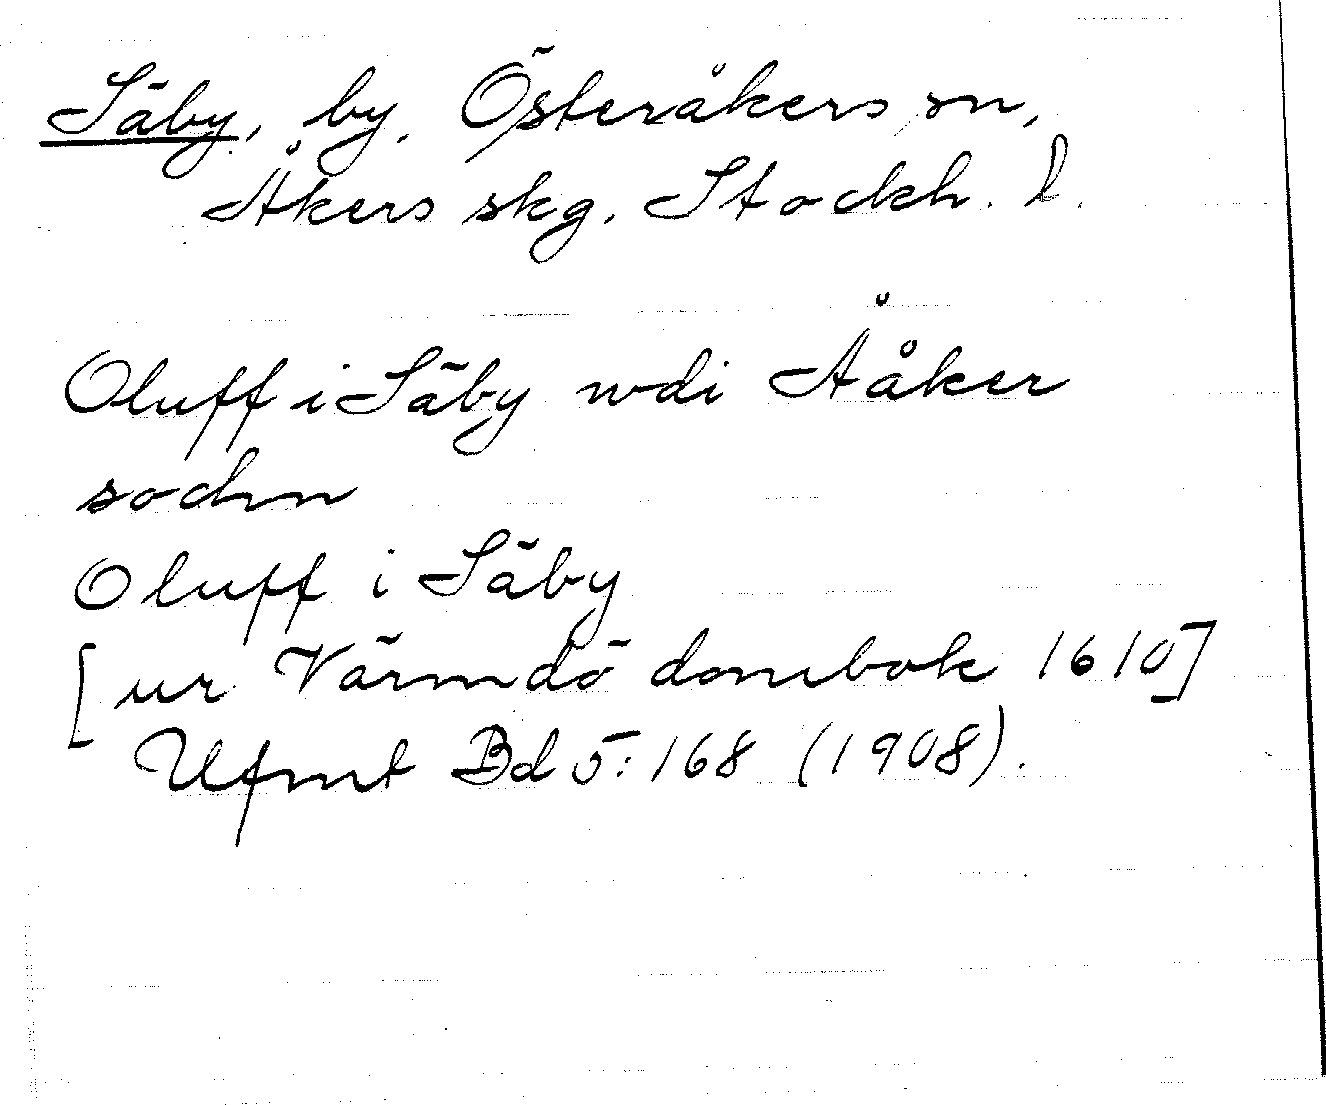 Säby, by, Österåkers sn,
Åkers skg. Stockh. l.
Oluff i Säby wdi Ååker
sochn
Oluff i Säby
[ur Värmdö dombok 1610]
Ufmt Bd 5:168 (1908).